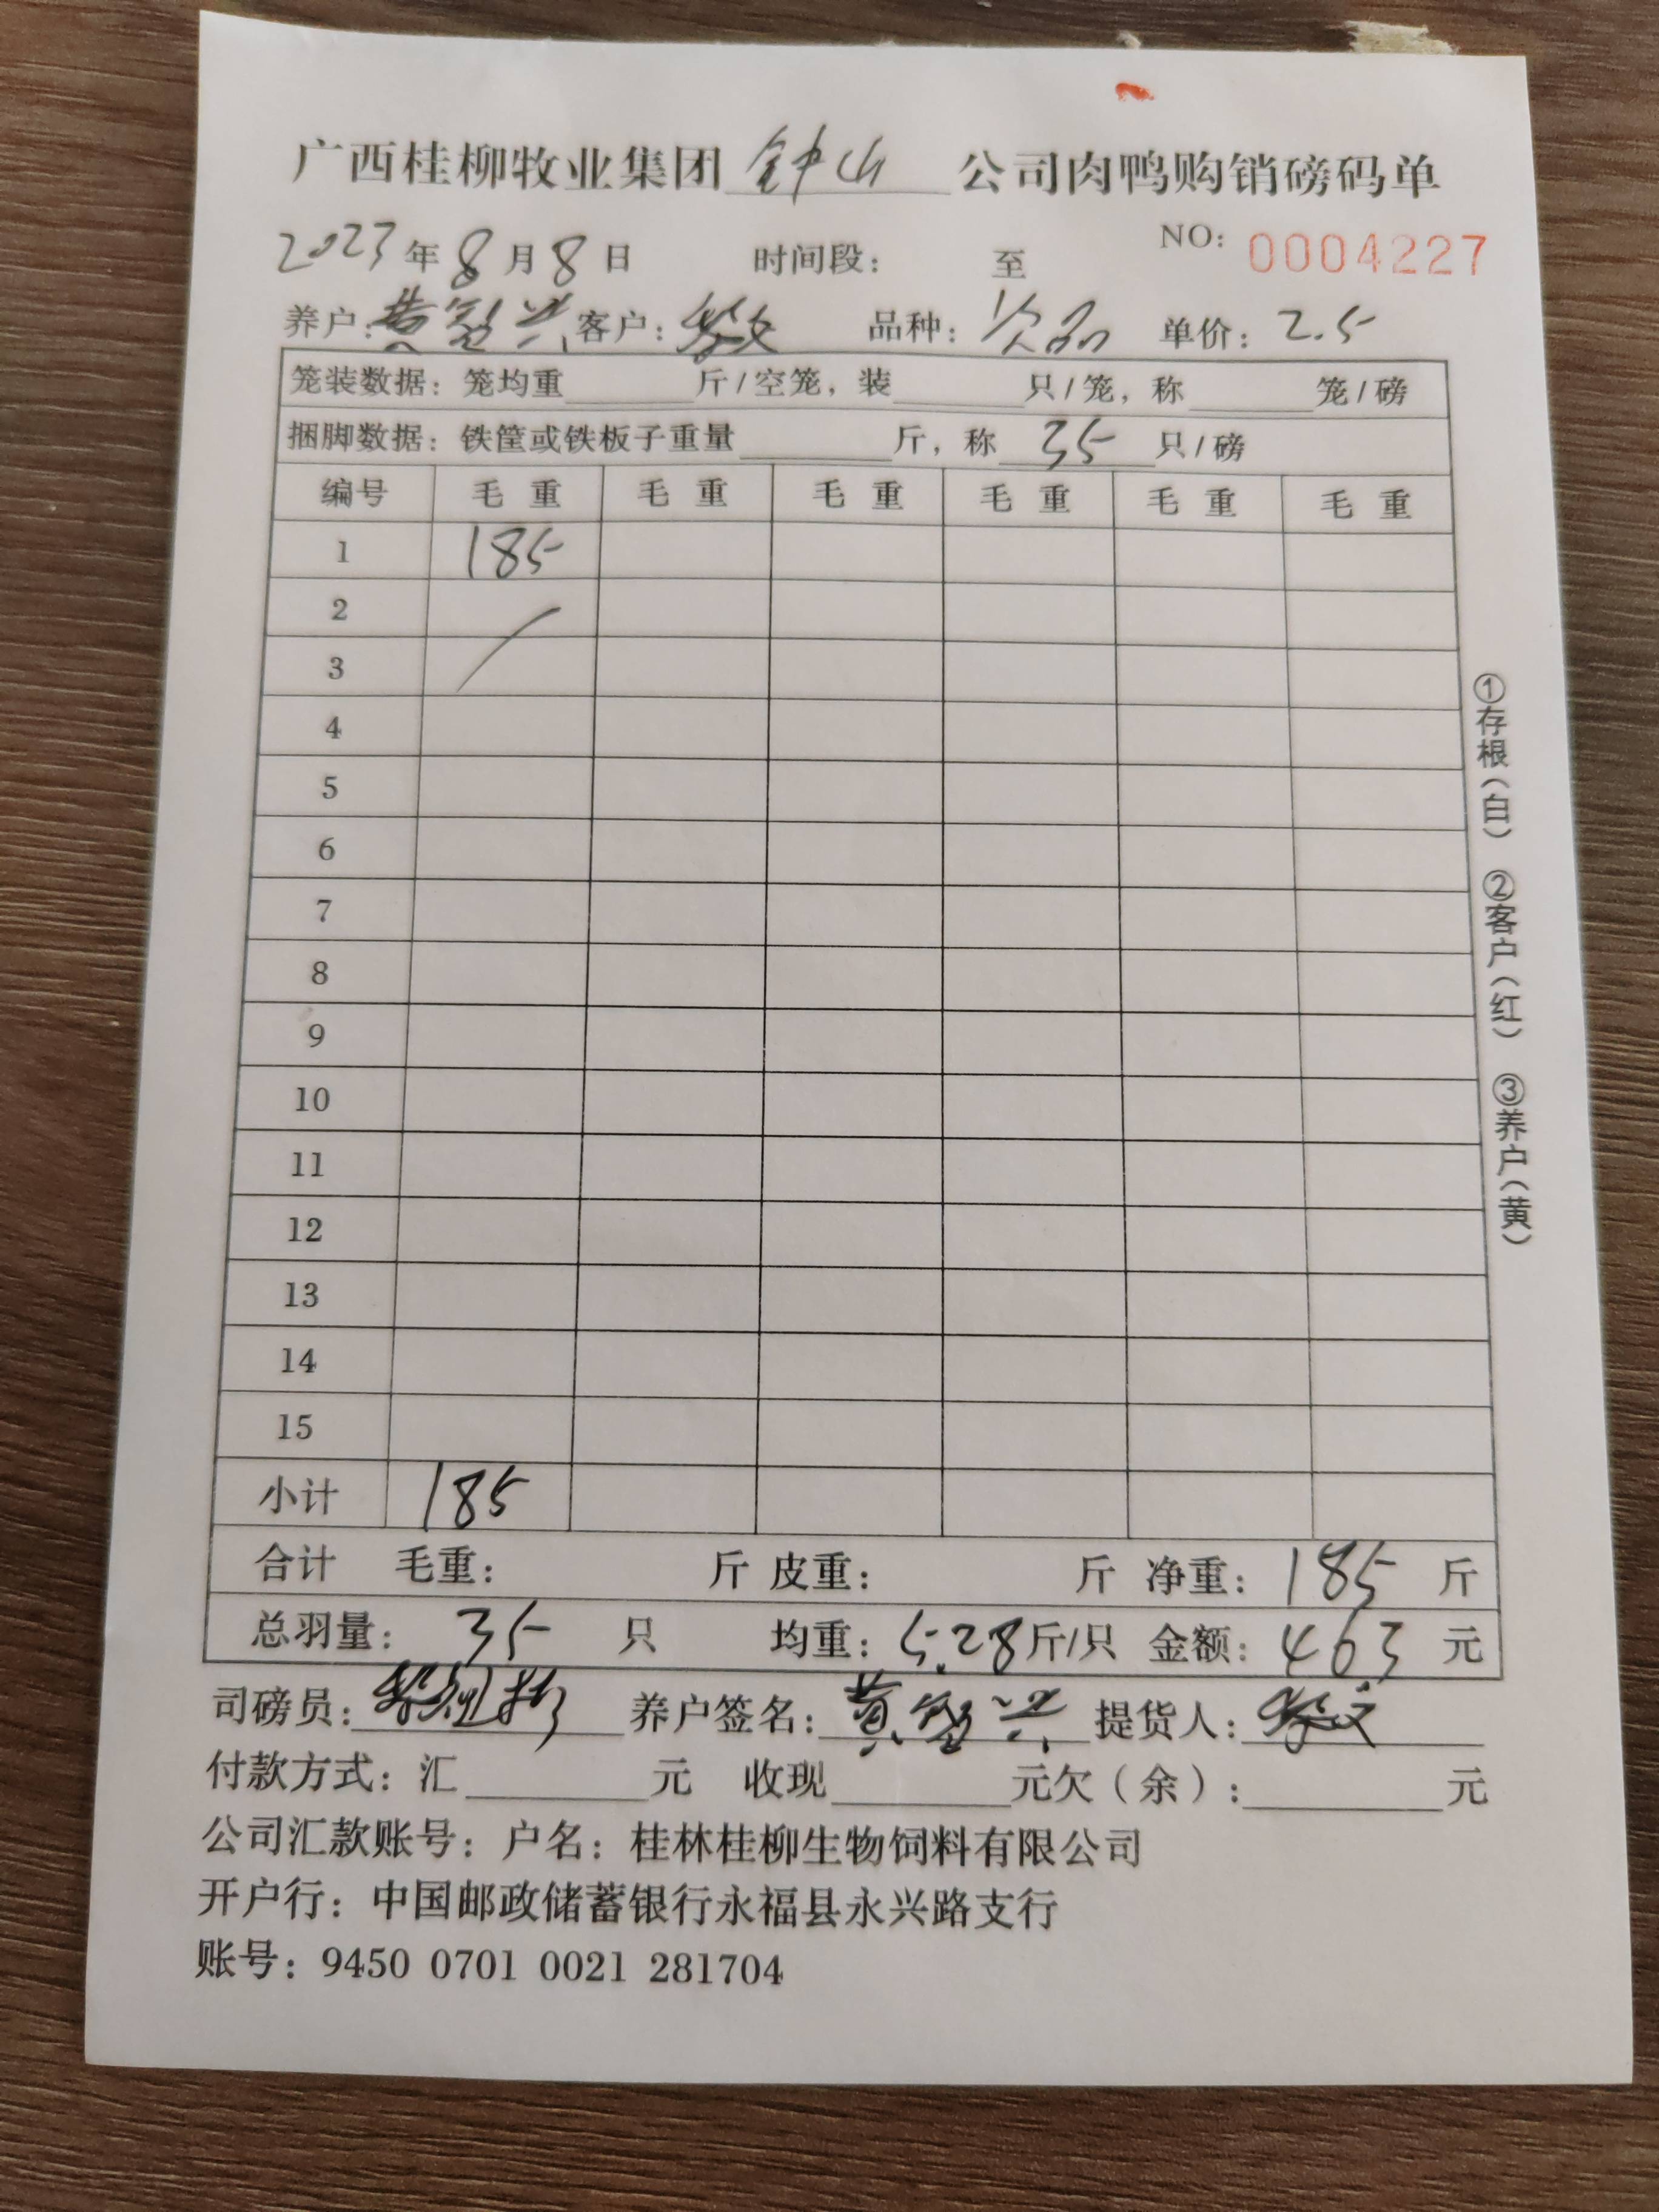 广西桂柳牧业集团 钟山 公司肉鸭购销磅码单
2023年8月8日 时间段: 至 NO: 0004227
养户:黄智兴 客户:黎文 品种:次品 单价:2.5
笼装数据:笼均重 斤/空笼,装 只/笼,称 笼/磅
捆脚数据:铁筐或铁板子重量 斤,称 35 只/磅
编号 毛重 毛重 毛重 毛重 毛重 毛重
1 185
2
3
4
5
6
7
8
9
10
11
12
13
14
15
小计 185
合计 毛重: 斤 皮重: 斤 净重:185 斤
总羽量:35 只 均重:5.28斤/只 金额:463 元
司磅员: 养户签名:黄智兴 提货人:黎文
付款方式:汇 元 收现 元欠(余): 元
公司汇款账号:户名:桂林桂柳生物饲料有限公司
开户行:中国邮政储蓄银行永福县永兴路支行
账号:9450 0701 0021 281704
①存根(白) ②客户(红) ③养户(黄)